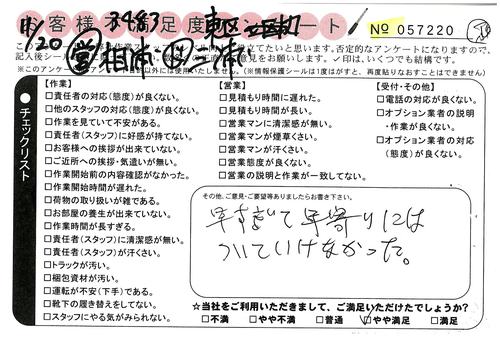 お客様不満足度アンケート
11/20
3483
No 057220
※このアンケートは
以外には使用いたしません。(※情報保護シールは1度はがすと、再度貼りなおすことはできません)
チェックリスト
【作業】
□責任者の対応(態度)が良くない。
□他のスタッフの対応(態度)が良くない。
□作業を見ていて不安がある。
□責任者(スタッフ)に好感が持てない。
□お客様への挨拶が出来ていない。
□ご近所への挨拶・気遣いが無い。
□作業開始前の内容確認がなかった。
□作業開始時間が遅れた。
□荷物の取り扱いが雑である。
□お部屋の養生が出来ていない。
□作業時間が長すぎる。
□責任者(スタッフ)に清潔感が無い。
□責任者(スタッフ)が汗くさい。
□トラックが汚い。
□梱包資材が汚い。
□運転が不安(下手)である。
□靴下の履き替えをしてない。
□スタッフにやる気がみられない。
【営業】
□見積もり時間に遅れた。
□見積もり時間が長い。
□営業マンに清潔感が無い。
□営業マンが煙草くさい。
□営業マンが汗くさい。
□営業態度が良くない。
□営業の説明と作業が一致してない。
【受付・その他】
□電話の対応が良くない。
□オプション業者の説明・作業が良くない。
□オプション業者の対応(態度)が良くない。
その他、ご意見・ご要望等ありましたらお書き下さい。
早すぎて年寄りには
ついていけなかった。
☆当社をご利用いただきまして、ご満足いただけたでしょうか?
□不満 □やや不満 □普通 ☑やや満足 □満足